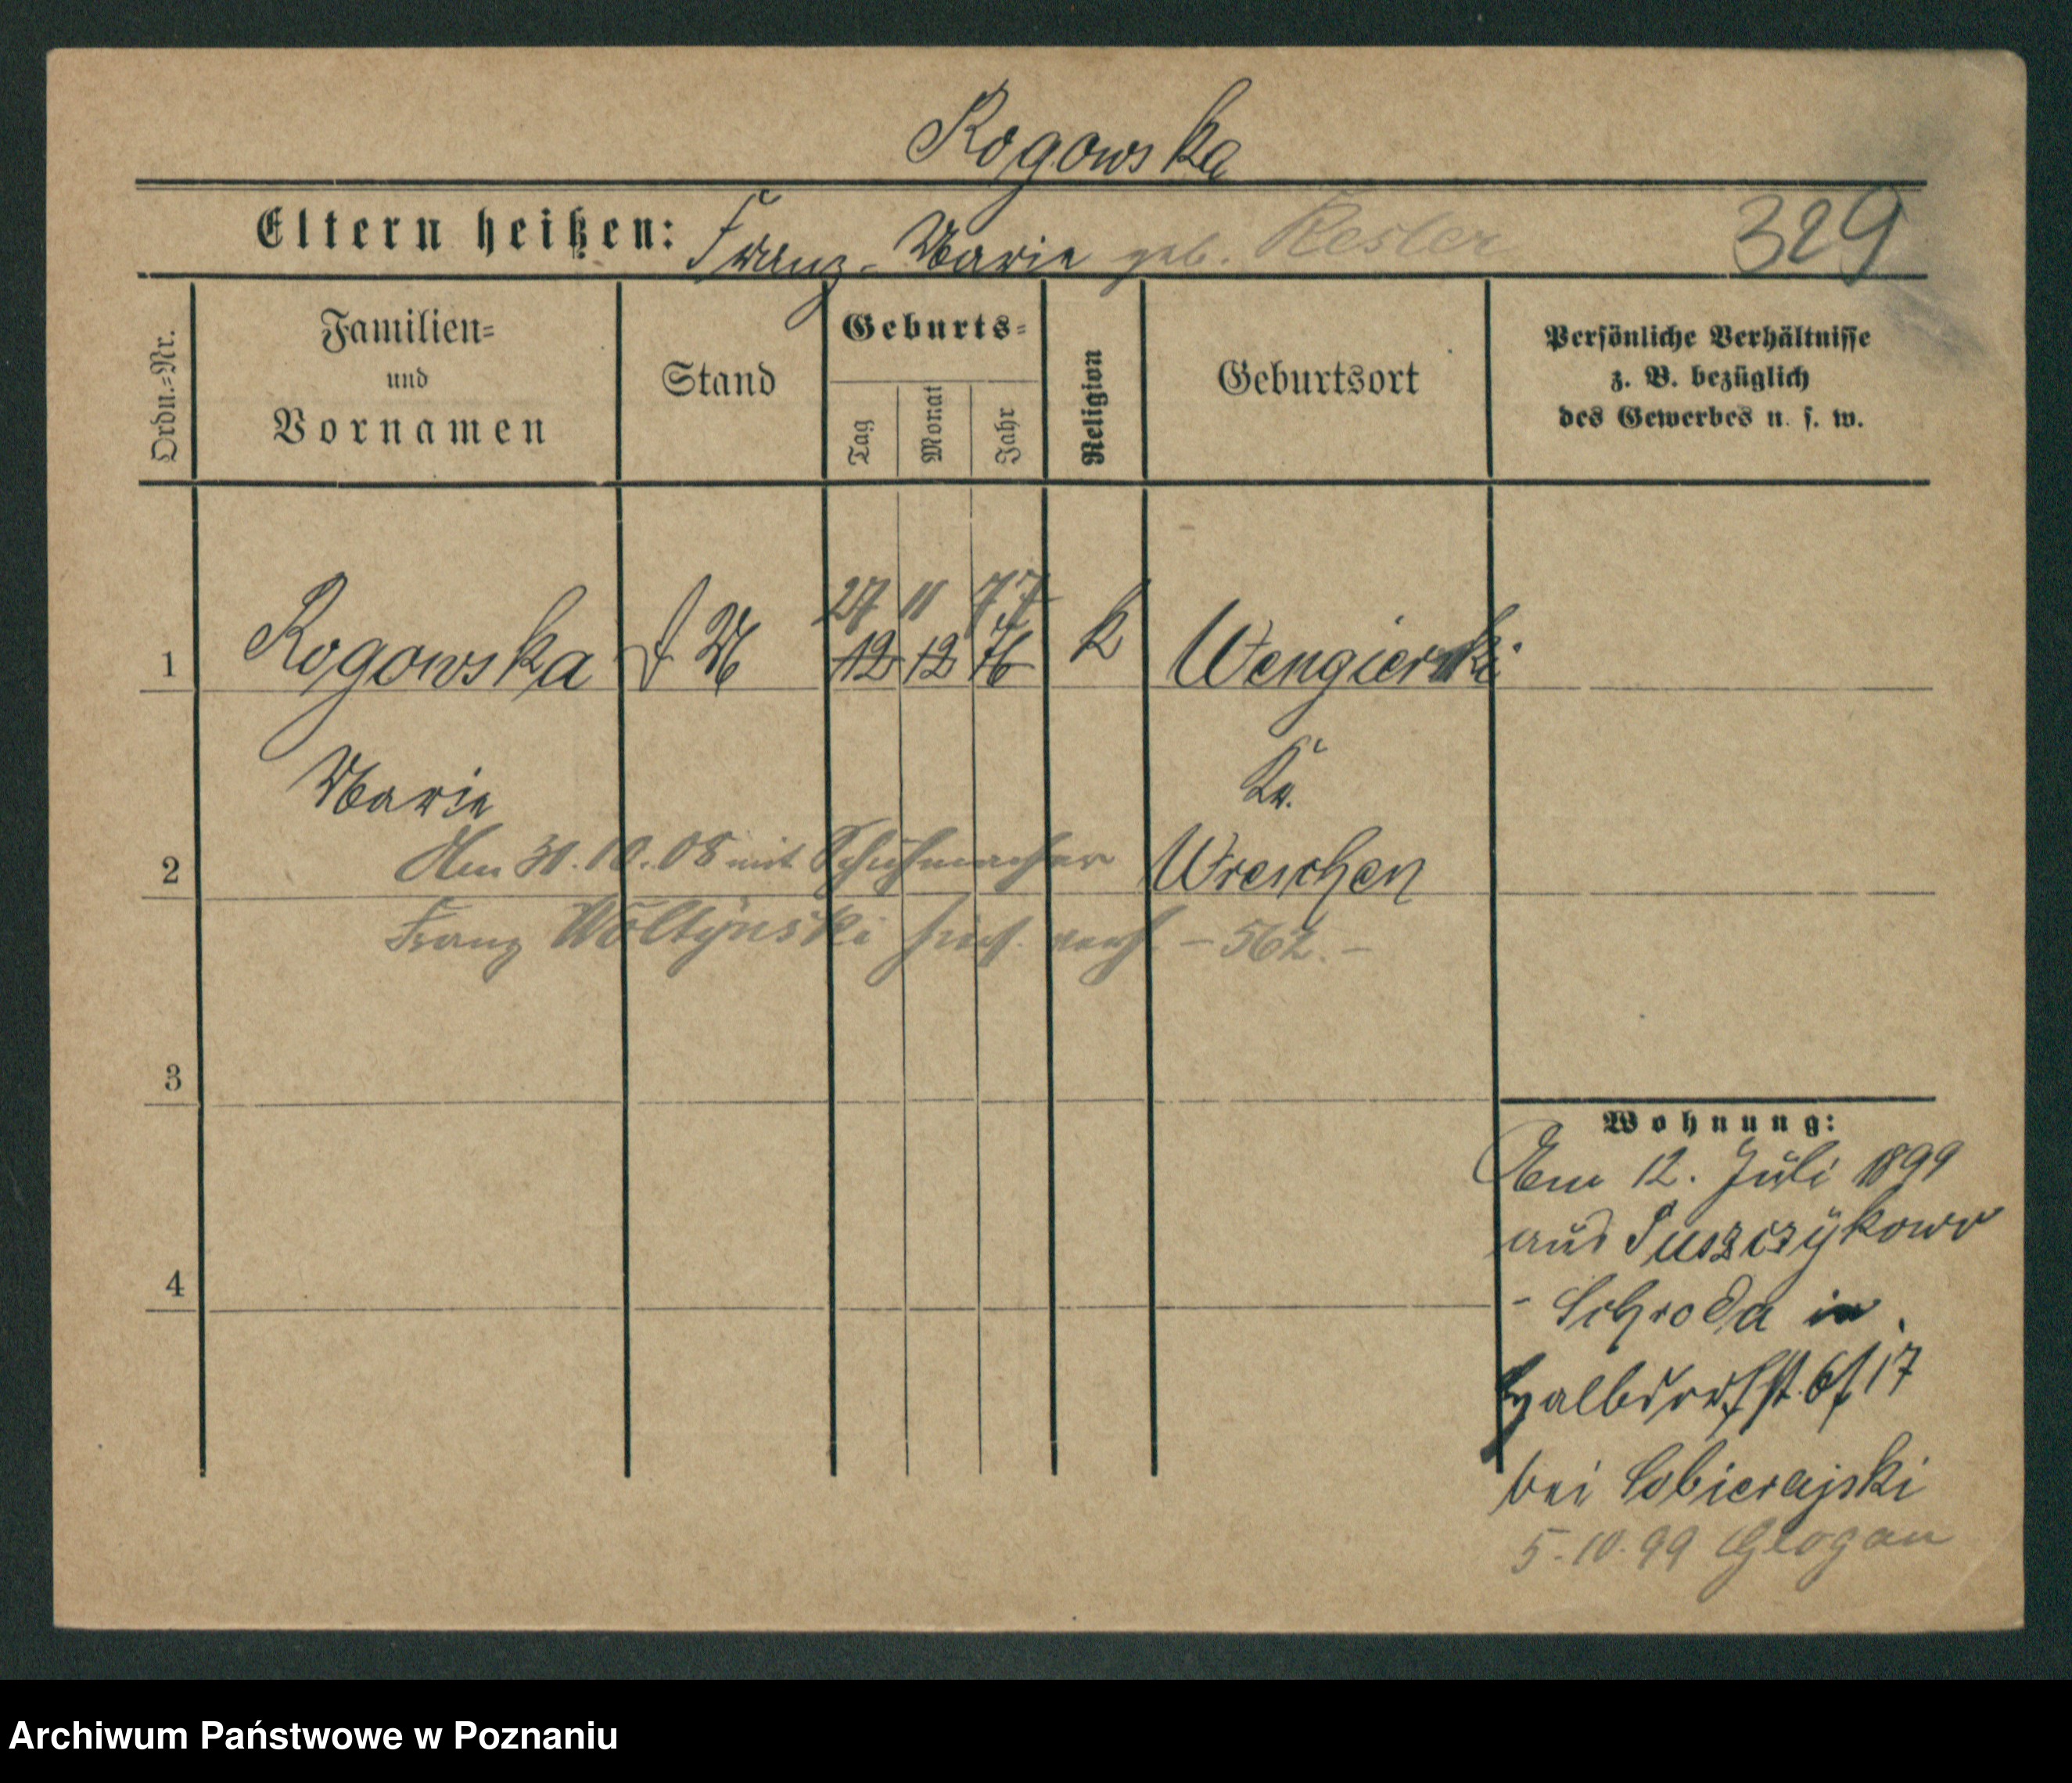 Rogowska
Eltern heißen: Franz - Marie geb. Resler 329
Ordn.-Nr.
Familien-
und
Vornamen
Stand
Geburts-
Tag
Monat
Jahr
Religion
Geburtsort
Persönliche Verhältnisse
z. B. bezüglich
des Gewerbes u. s. w.
27 11 77
1 Rogowska 12 12 76 k Wengierski
Marie Kr.
2 Am 31.10.08 mit Schuhmacher Wreschen
Franz Woltynski hier verh. - 562. -
3
4
Wohnung:
Am 12. Juli 1899
aus Puszczykowo
- Schroda in
Halbdorfst. 17
bei Sobierajski
5.10.99 Glogau
Archiwum Państwowe w Poznaniu